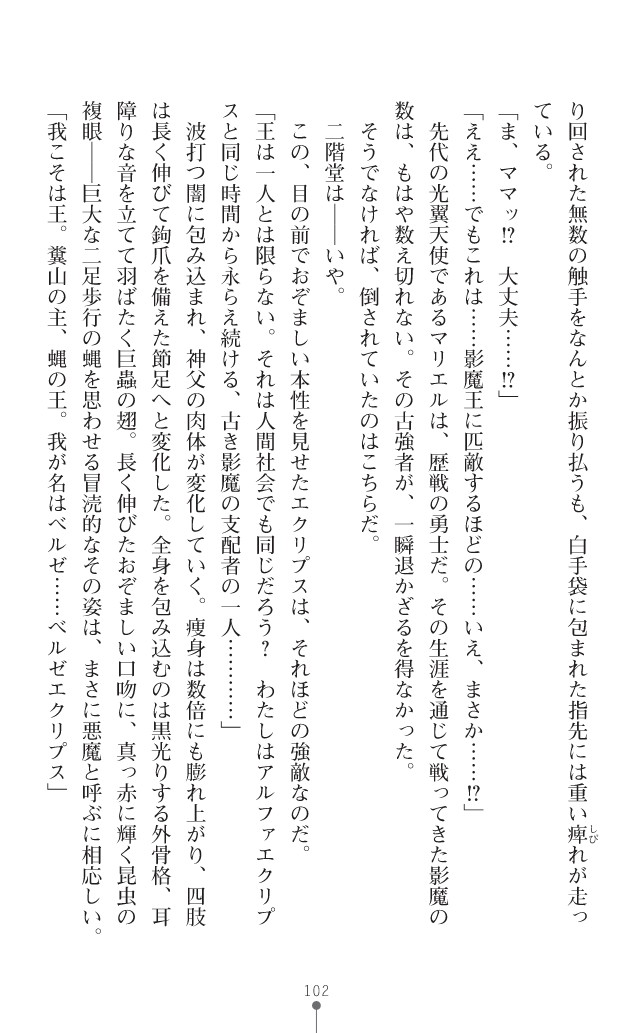 り回された無数の触手をなんとか振り払うも、白手袋に包まれた指先には重い痺れが走っ
しび
ている。
「ま、ママッ!?　大丈夫……!?」
「ええ……でもこれは……影魔王に匹敵するほどの……いえ、まさか……!?」
　先代の光翼天使であるマリエルは、歴戦の勇士だ。その生涯を通じて戦ってきた影魔の
数は、もはや数え切れない。その古強者が、一瞬退かざるを得なかった。
　そうでなければ、倒されていたのはこちらだ。
　二階堂は――いや。
　この、目の前でおぞましい本性を見せたエクリプスは、それほどの強敵なのだ。
「王は一人とは限らない。それは人間社会でも同じだろう？　わたしはアルファエクリプ
スと同じ時間から永らえ続ける、古き影魔の支配者の一人…………」
　波打つ闇に包み込まれ、神父の肉体が変化していく。痩身は数倍にも膨れ上がり、四肢
は長く伸びて鉤爪を備えた節足へと変化した。全身を包み込むのは黒光りする外骨格、耳
障りな音を立てて羽ばたく巨蟲の翅。長く伸びたおぞましい口吻に、真っ赤に輝く昆虫の
複眼――巨大な二足歩行の蝿を思わせる冒涜的なその姿は、まさに悪魔と呼ぶに相応しい。
「我こそは王。糞山の主、蝿の王。我が名はベルゼ……ベルゼエクリプス」
102